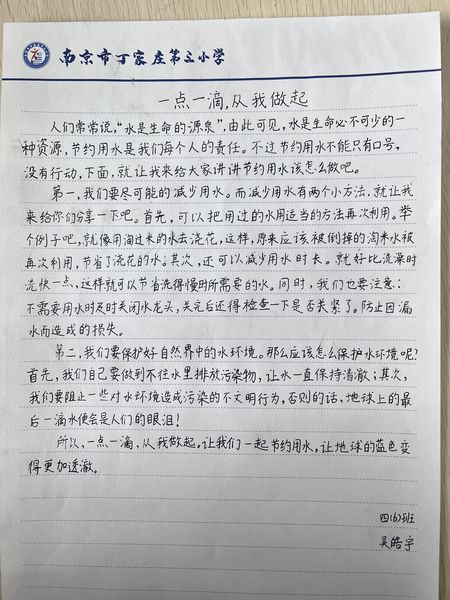 南京市丁家庄第三小学
一点一滴,从我做起
人们常常说,“水是生命的源泉”,由此可见,水是生命必不可少的一
种资源,节约用水是我们每个人的责任。不过节约用水不能只有口号,
没有行动,下面,就让我来给大家讲讲节约用水该怎么做吧。
第一,我们要尽可能的减少用水。而减少用水有两个小方法,就让我
来给你们分享一下吧。首先,可以把用过的水用适当的方法再次利用。举
个例子吧,就像用淘过米的水去浇花,这样,原来应该被倒掉的淘米水被
再次利用,节省了浇花的水。其次,还可以减少用水时长。就好比洗澡时
洗快一点、这样就可以节省洗得慢时所需要的水。同时,我们也要注意:
不需要用水时及时关闭水龙头,关完后还得检查一下是否关紧了。防止因漏
水而造成的损失。
第二,我们要保护好自然界中的水环境。那么应该怎么保护水环境呢?
首先,我们自己要做到不往水里排放污染物,让水一直保持清澈;其次,
我们要阻止一些对水环境造成污染的不文明行为,否则的话,地球上的最
后一滴水便会是人们的眼泪!
所以,一点一滴,从我做起。让我们一起节约用水,让地球的蓝色变
得更加透澈。
四(6)班
吴皓宇